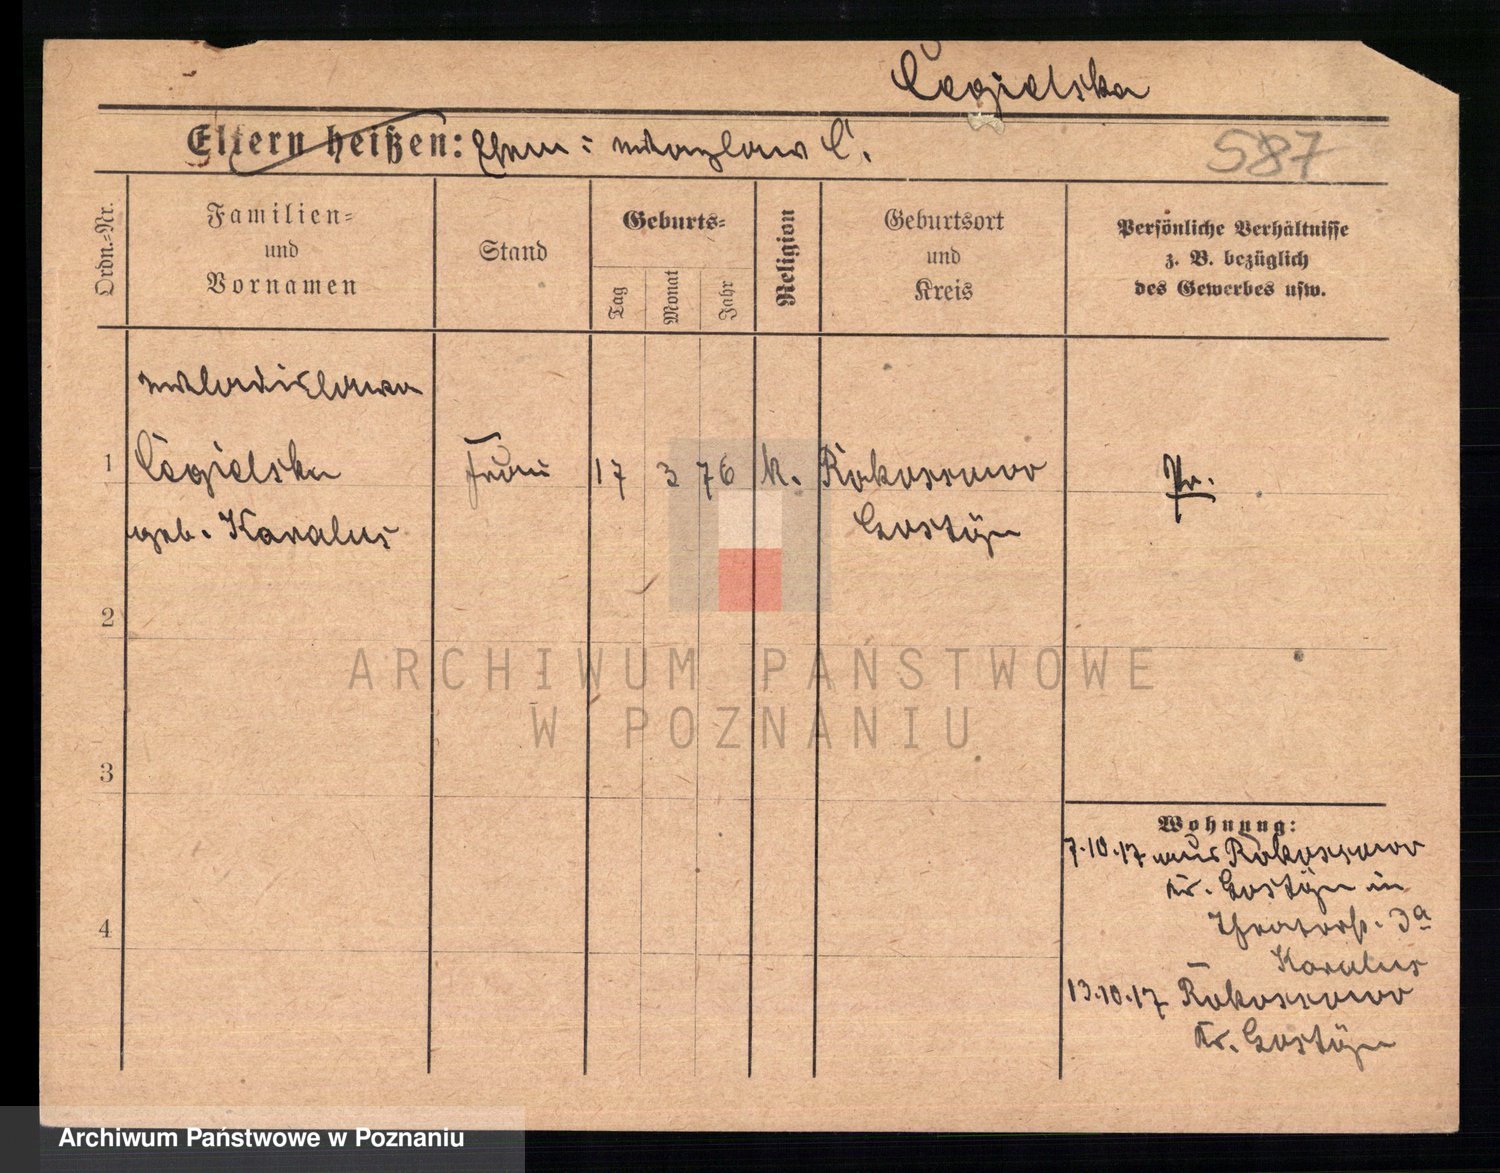 Cegielska
Eltern heißen: Ehem: Wladyslaw C.
587
Ordn.=Nr.
Familien=
und
Vornamen
Stand
Geburts=
Tag
Monat
Jahr
Religion
Geburtsort
und
Kreis
Persönliche Verhältnisse
z. B. bezüglich
des Gewerbes usw.
Wladislawa
1 Cegielska Frau 17 3 76 k. Rokossowo Pr.
geb. Karalus Gostÿn
2
ARCHIWUM PAŃSTWOWE
W POZNANIU
3
4
Wohnung:
7.10.17 aus Rokossowo
Kr. Gostÿn in
Theaterstr. 3a
Karalus
13.10.17 Rokossowo
Kr. Gostÿn
Archiwum Państwowe w Poznaniu